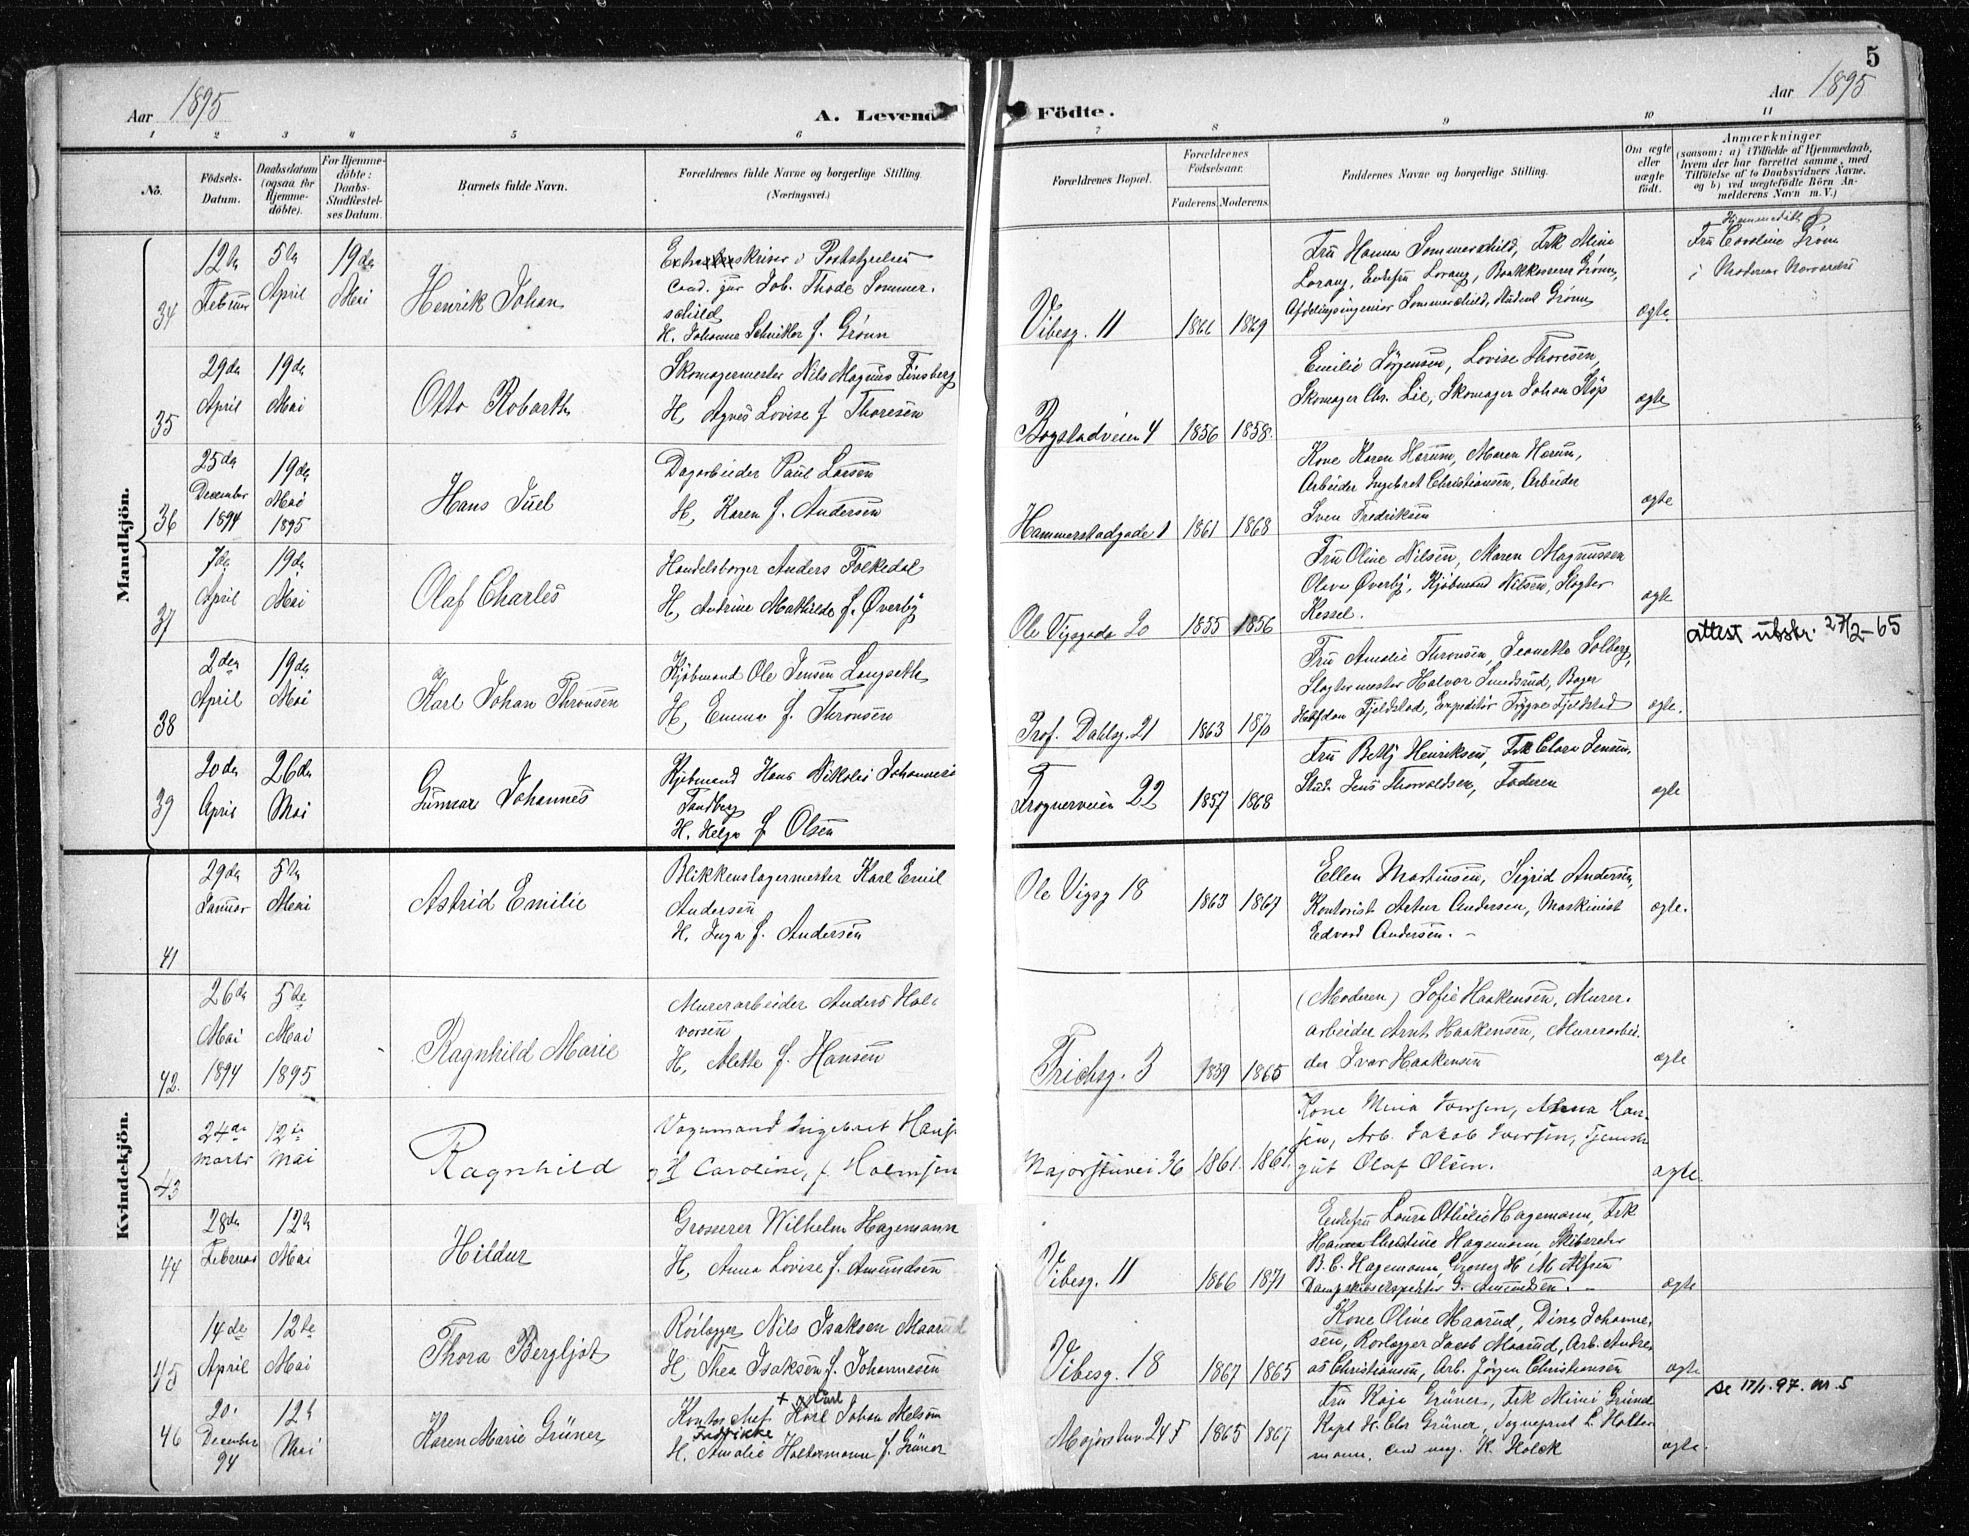 5
Aar 1895
A. Levende Födte.
Aar 1895
1 2 3 4 5 6 7 8 9 10 11
No.
Födsels-
Datum.
Daabsdatum
(ogsaa for
Hjemme-
döbte).
For Hjemme-
döbte:
Daabs-
Stadfæstel-
ses Datum.
Barnets fulde Navn.
Forældrenes fulde Navne og borgerlige Stilling.
(Næringsvei.)
Forældrenes Bopæl.
Forældrenes
Födselsaar.
Faderens. Moderens.
Faddernes Navne og borgerlige Stilling.
Om ægte
eller
uægte
födt.
Anmærkninger
(saasom: a) i Tilfælde af Hjemmedaab,
hvem der har forrettet samme, med
Tilföielse af to Daabsvidners Navne.
og b) ved uægtefödte Börn An-
melderens Navn m. V.)
Mandkjön.
34
12te
Februar
5te
April
19de
Mai
Henrik Johan
skriver i Poststyrelsen
cand. jur Job. Thode Sommer-
schild
H. Johanne f. Grønn
Vibesg. 11
1869
Fru Hanna Sommerschild, Frk Mimi
Lorang, Enkefru Lorang, Grønn,
Afdelingsingeniør Sommerschild, Student Grønn
ægte.
Hjemmedøbt af
Fru Caroline Grønn
i Moderens Nærværelse
35
29de
April
19de
Mai
Otto Robarth
Skomagermester Nils Magnus Finsberg
H, Agnes Lovise f Thoresen
Bogstadveien 4
1856 1858.
Emilie Jørgensen, Lovise Thoresen,
Skomager Chr. Lie, Skomager Johan
ægte
36
25de
December
1894
19de
Mai
1895
Hans Juel
Dagarbeider Paul Larsen
H, Karen f. Andersen
Hammerstadgade 1
1861 1868
Kone Karen Hærum, Maren Hærum,
Arbeider Ingebret Christiansen, Arbeider
Sven Fredriksen
ægte
37
7de
April
19de
Mai
Olaf Charles
Handelsborger Anders Folkedal
H, Andrine Mathilde f. Øverby
Ole Vigsgade 20
1855 1856
Fru Oline Nilsen, Maren Magnussen
Olava Øverby, Kjøbmand Nilsen, Slagter
Kessel.
ægte
attest utskr. 27/2-65
38
2den
April
19de
Mai
Karl Johan Thronsen
Kjøbmand Ole Jensen Langseth
H, Emma f. Thronsen
Prof. Dahlsg. 21
1863 1870
Fru Amalie Thronsen, Jeanette Solberg,
Slagtermester Halvor Sundsrud, Bager
Halfdan Fjeldstad, Expeditør Trygve Fjeldstad
ægte.
39
20de
April
26de
Mai
Gunnar Johannes
Kjøbmand Hans Nikolai Johannes
Tandberg
H. Helga f Olsen
Frognerveien 22
1857 1868
Fru Betty Henriksen, Frk Clara Jensen,
Stud. Jens Thorvaldsen, Faderen
ægte
Kvindekjön.
41
29de
Januar
5te
Mai
Astrid Emilie
Blikkenslagermester Karl Emil
Andersen
H. Inga f. Andersen
Ole Vigsg 18
1863 1867
Ellen Martinsen, Sigrid Andersen,
Kontorist Artur Andersen, Maskinist
Edvard Andersen. -
ægte.
42.
26de
Mai
1894
5te
Mai
1895
Ragnhild Marie
Murerarbeider Anders Hal-
vorsen
H, Mette f. Hansen
Frichsg. 3
1859 1865
(Moderen) Sofie Haakensen, Murer-
arbeider Arnt Haakensen, Murerarbei-
der Ivar Haakensen
ægte
43
24de
Marts
12te
Mai
Ragnhild
Vognmand Ingebret Hans
H Caroline, f. Holmsen
Majorstuvei 36
1861.
Kone Mina Iversen, Anna Han-
sen, Arb. Jakob Iversen, Tjeneste
gut Olaf Olsen.
ægte.
44
28de
Februar
12te
Mai
Hildur
Grosserer Wilhelm Hagemann
H, Anna Lovise f. Amundsen
Vibesg. 11
1866 1871
Enkefru Laura Ottilie Hagemann, Frk
Hanna Christine Hagemann, Skibsreder
B. C. Hagemann, H. M. Alfsen
G. Amundsen. -
ægte
45
14de
April
12te
Mai
Thora Bergljot
Rørlægger Nils Isaksen Maarud
H Thea Isaksen f. Johannesen
Vibesg. 18
1867 1865
Kone Oline Maarud, Dina Johanne-
sen, Rørlægger Jacob Maarud, Arb. Andre-
as Christiansen, Arb. Jørgen Christiansen
ægte
46
20.
December
94
12te
Mai
Karen Marie Grüner
+ Carl
Kontorchef Karl Johan Melsom
Fredrikke
H. Amalie Holtermann f. Grüner
Majorstuv. 24 F
1865 1867
Fru Kaja Grüner, Frk Mimi Grüner
Kapt H. Chr Grüner, Sogneprest L. Holter-
mann, K. Holck
ægte.
se 17/1. 97. nr. 5